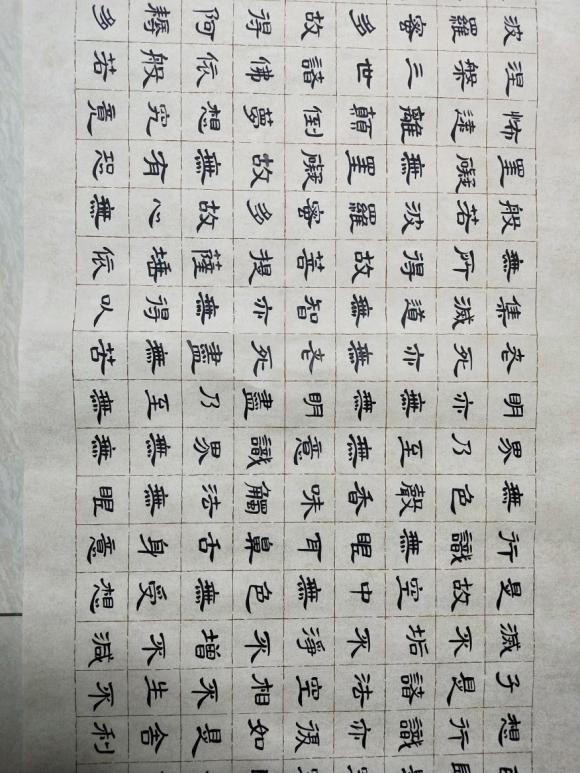 想行識亦復如是舍利
子是諸法空相不生不
滅不垢不淨不增不減
是故空中無色無受想
行識無眼耳鼻舌身意
無色聲香味觸法無眼
界乃至無意識界無無
明亦無無明盡乃至無
老死亦無老死盡無苦
集滅道無智亦無得以
無所得故菩提薩埵依
般若波羅蜜多故心無
罣礙無罣礙故無有恐
怖遠離顛倒夢想究竟
涅槃三世諸佛依般若
波羅蜜多故得阿耨多